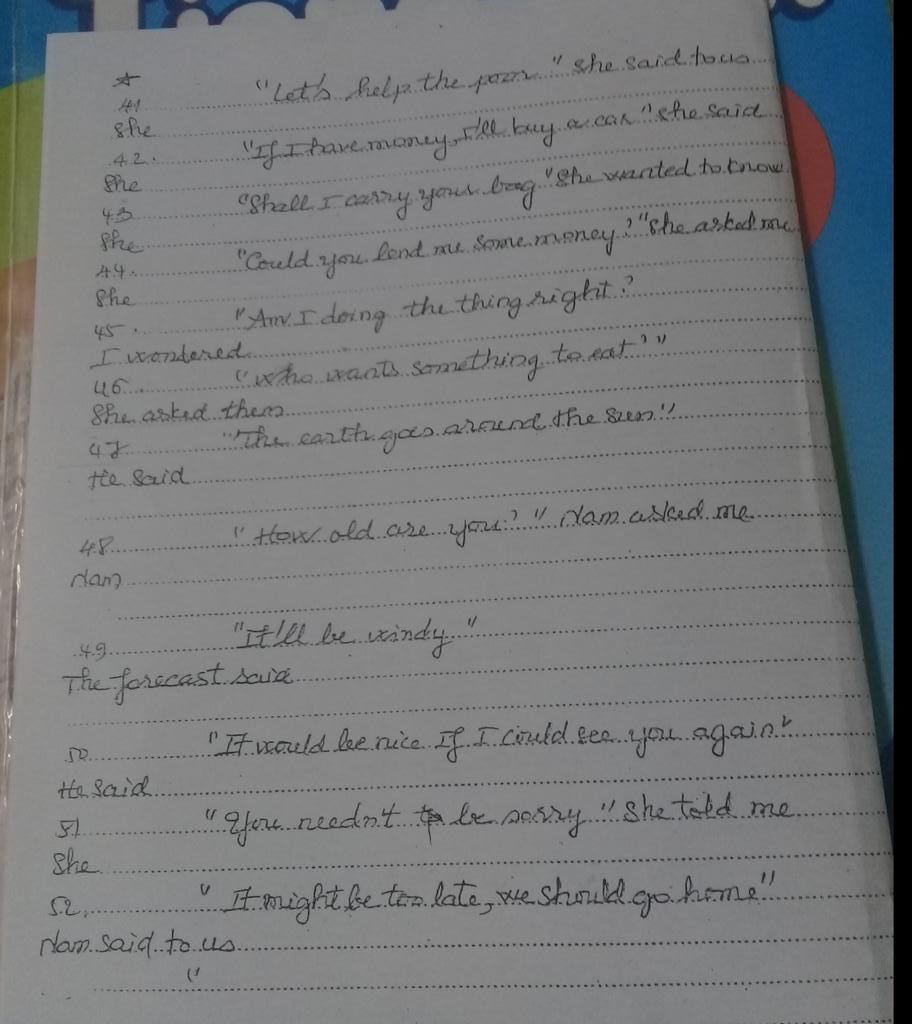 41 "Let's help the poor" she said to us
She
42. "If I have money, I'll buy a car" she said
She
43 "Shall I carry your bag" She wanted to know
She
44. "Could you lend me some money?" She asked me
She
45. "Am I doing the thing right?
I wondered
46. "Who wants something to eat?"
She asked them
47 "The earth goes around the sun"
He said
48. "How old are you?" Nam asked me
Nam
49. "It'll be windy"
The forecast said
50 "It would be nice If I could see you again"
He said
51 "You needn't be sorry" She told me
She
52. "It might be too late, we should go home"
Nam said to us
"